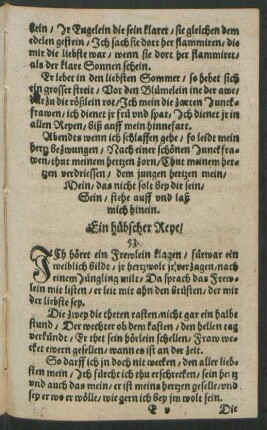 lein / Jr Eugelein die sein klarer / sie gleichen dem
edelen gestein / Jch sach sie dort her flammiren / die
mir die liebste war / wenn sie dort her flammiret /
als der klare Sonnen schein.
Er leber in den liebsten Sommer / so hebet sich
ein grosser streit / Vor den Blümelein inc der awe /
rosen die rößlein rot / Jch mein die zarten Junck-
frawen / ich diener jr frü vnd spat / Jch diener jr in
allen Reyen / biß auff mein hinnefart.
Abendas wenn ich schlaffen gehe / so leidt mein
hertz bezwungen / Nach einer schönen Junckfra-
wen / thut meinem hertzen zorn / Thut meinem her-
tzen verdriessen / dem jungen hertzen mein /
Mein / das nicht solt bey dir sein /
Sein / stehe auff vnd laß
mich hinein.
Ein hübscher Reye /
53.
JCh höret ein Frewlein klagen / fürwar ein
weiblich bilde / jr hertz wolt jr verzagen / nach
einem Jüngling milt / Da sprach das Frew-
lein mit listen / er leit mir ahn den brüsten / der mir
der liebste sey.
Die zwey die theten rasten / nicht gar ein halbe
stund / Der wechter ob dem kasten / den hellen tag
verkünde / Er thet sein hörlein schellen / Fraw we-
cket ewern gesellen / wann es ist an der zeit.
So darff ich jn doch nit wecken / den aller lieb-
sten mein / Jch fürcht ich thu erschrecken / sein her tz
vnd auch das mein / er ist meins hertzen geselle / vnd
sey er wo er wölle / wie gern ich bey jm wolt sein.
E v Die